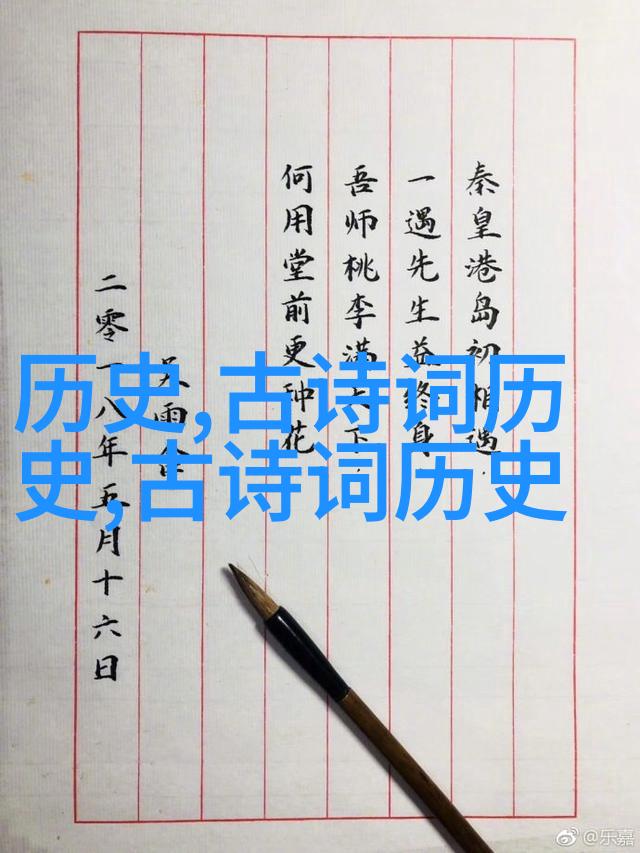 秦皇港岛初相遇
一遇先生益终身
吾师桃李满天下
何用堂前更种花
吴雨
二零一八年五月十六日
历史,古诗词历
史,古诗词历史
@乐嘉